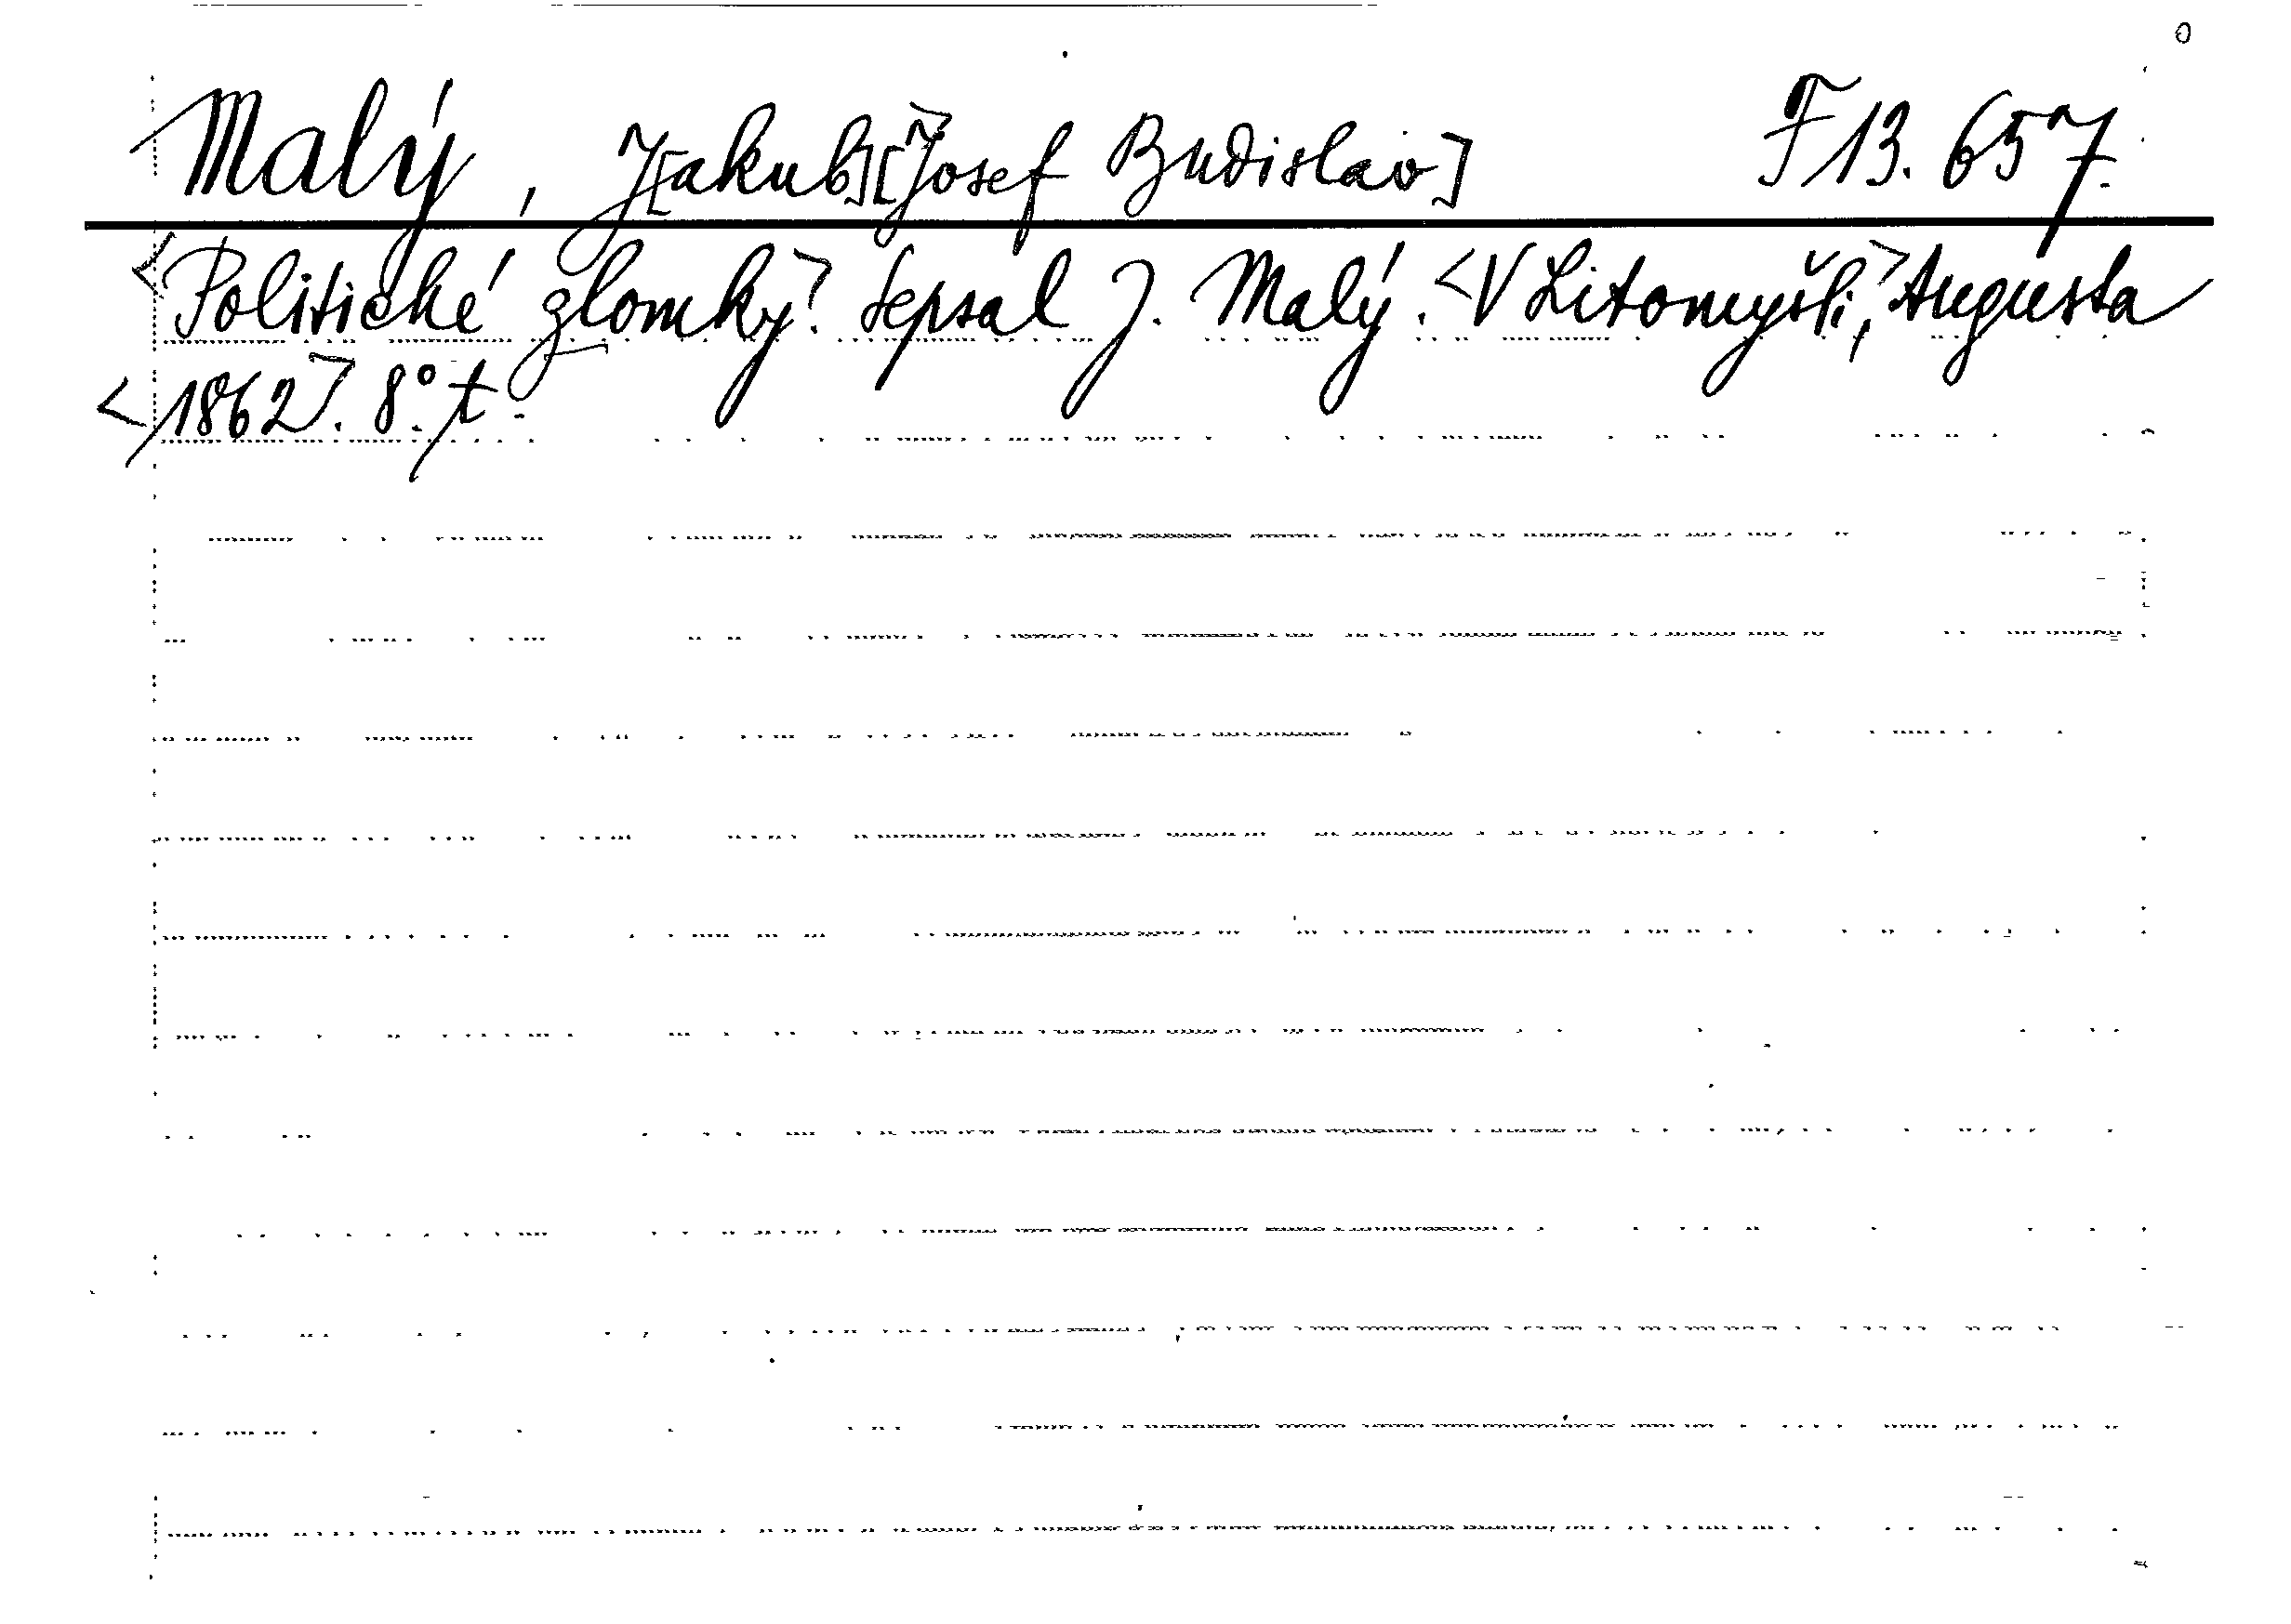 Malý, J[akub][Josef Budislav] F 13.657.
<Politické zlomky>. Sepsal J. Malý. <V Litomyšli,> Augusta
<1862>. 8°. t.